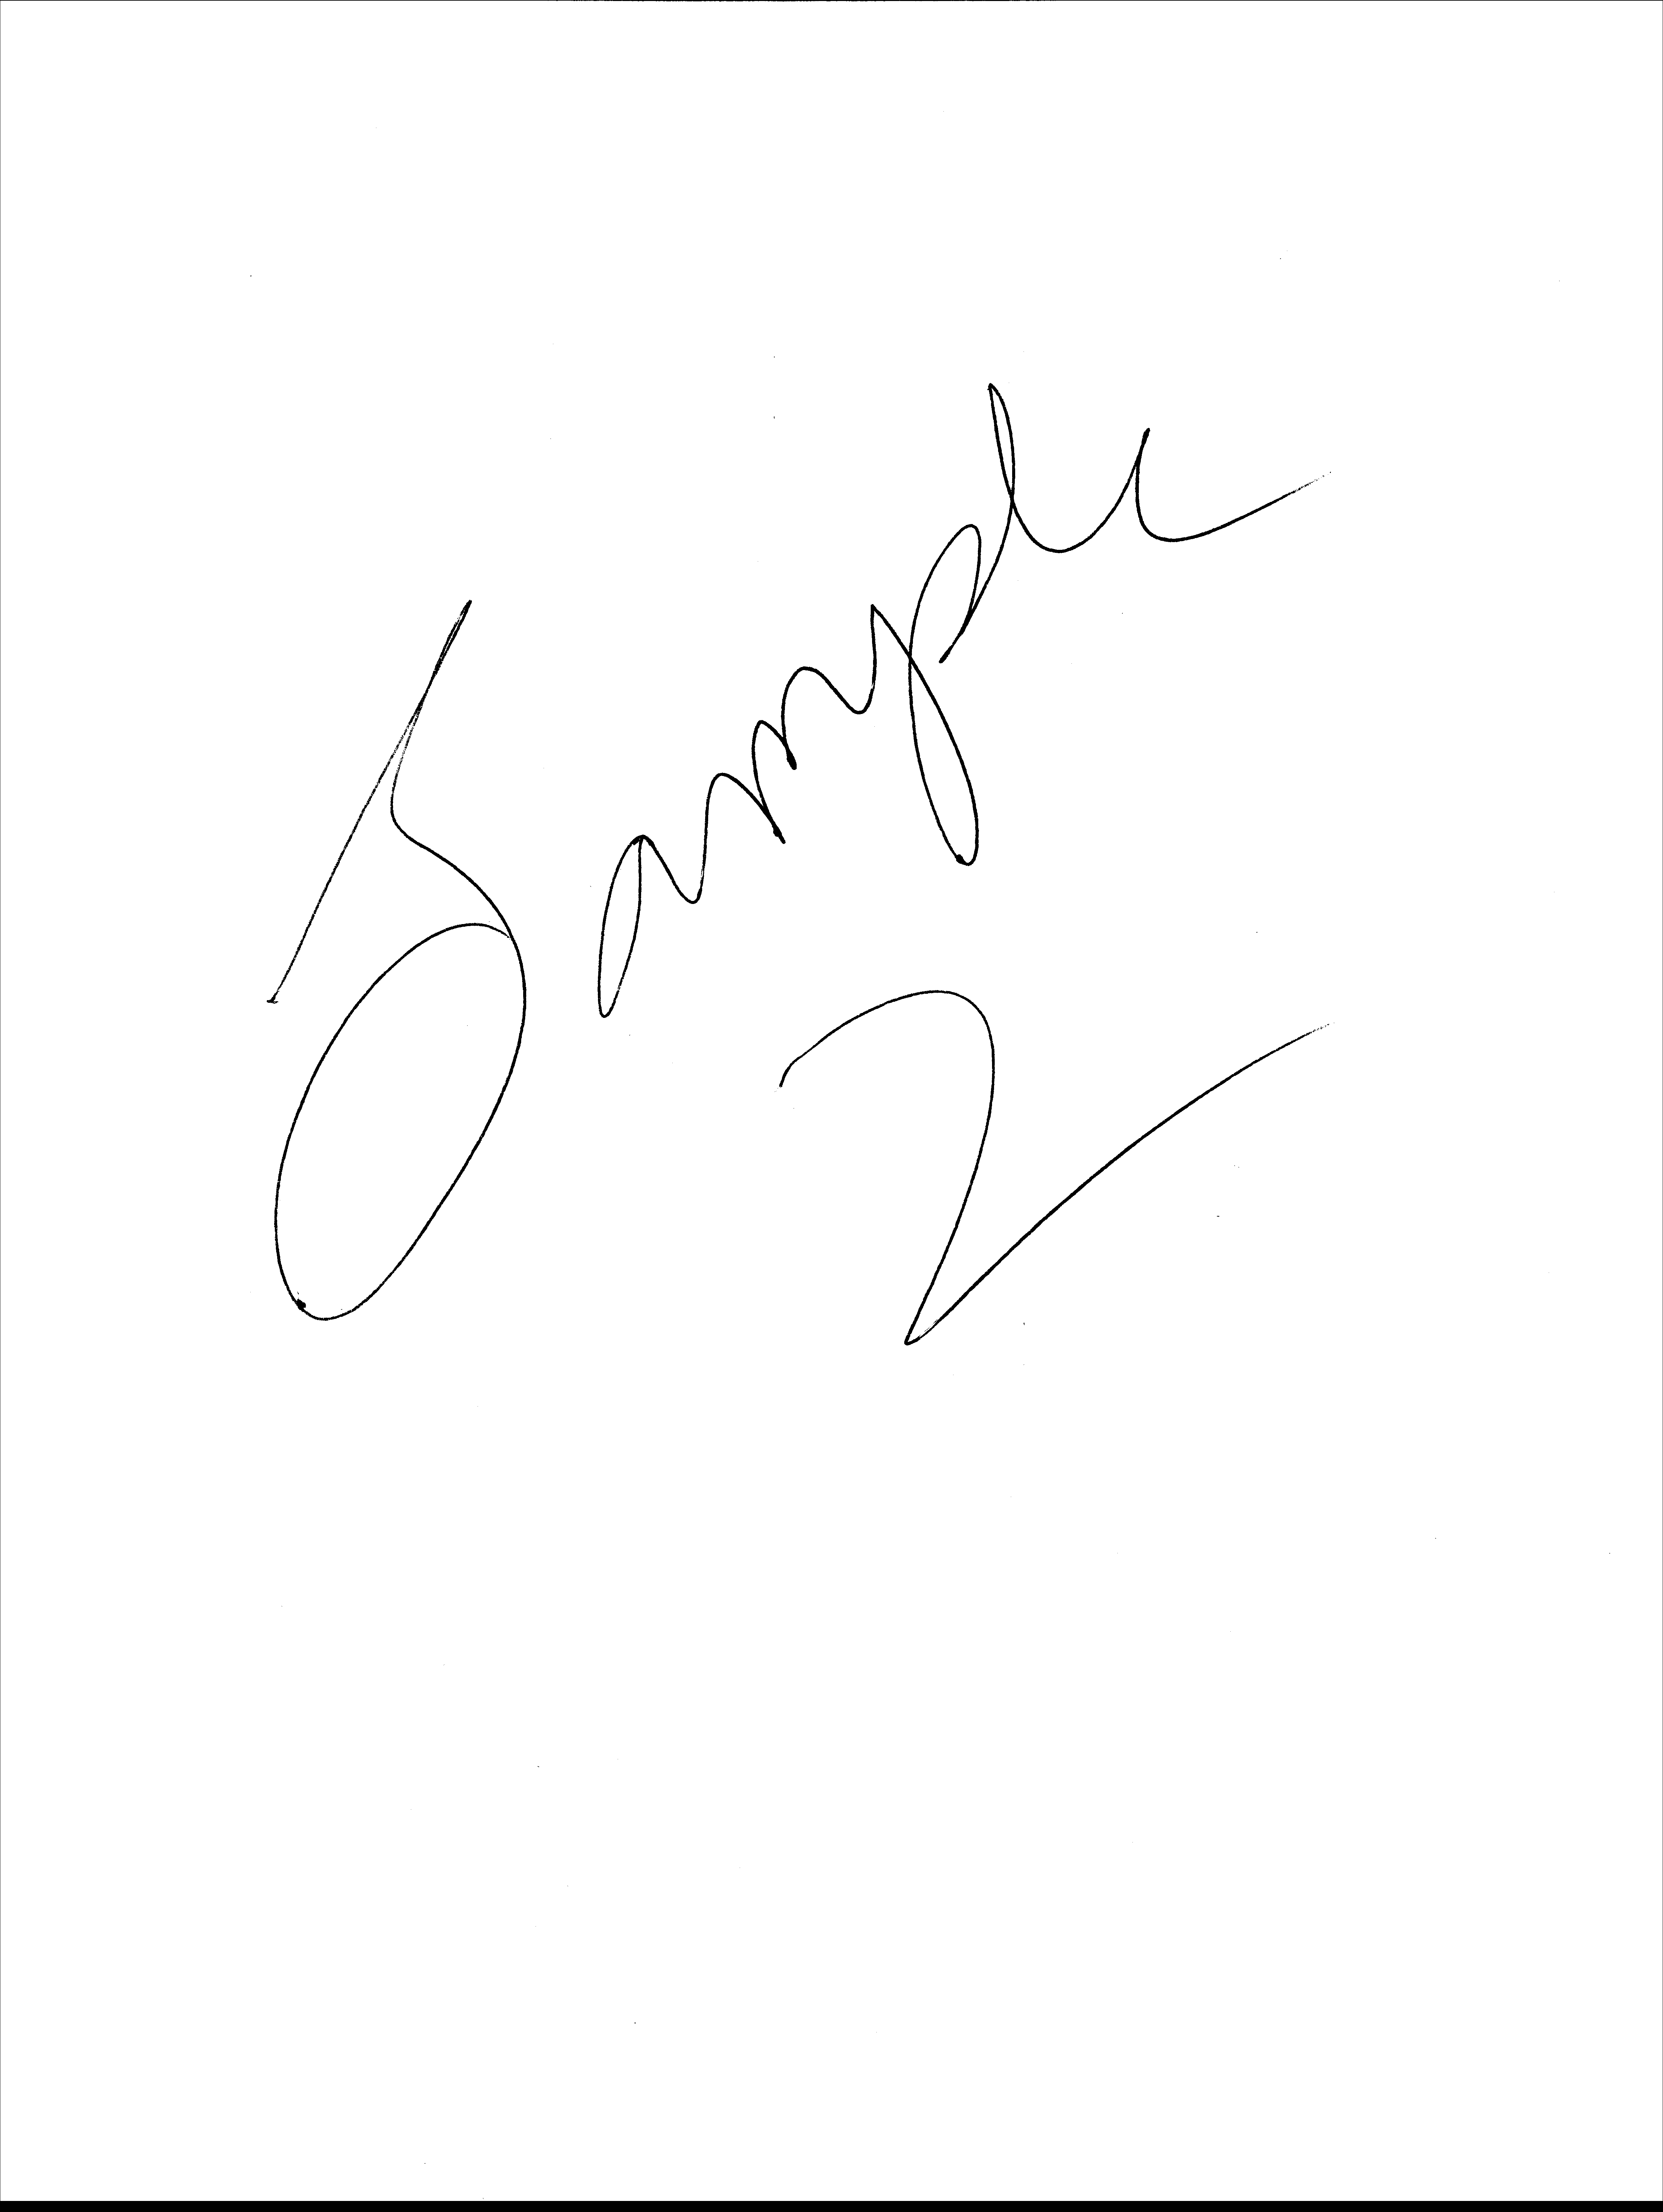 Sample
2